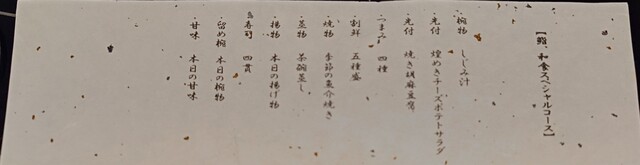 【鮨・和食スペシャルコース】
・椀物 しじみ汁
・先付 煌めきチーズポテトサラダ
・先付 焼き胡麻豆腐
・つまみ 四種
・割鮮 五種盛
・焼物 季節の魚介焼き
・蒸物 茶碗蒸し
・揚物 本日の揚げ物
・寿司 四貫
・留め椀 本日の椀物
・甘味 本日の甘味